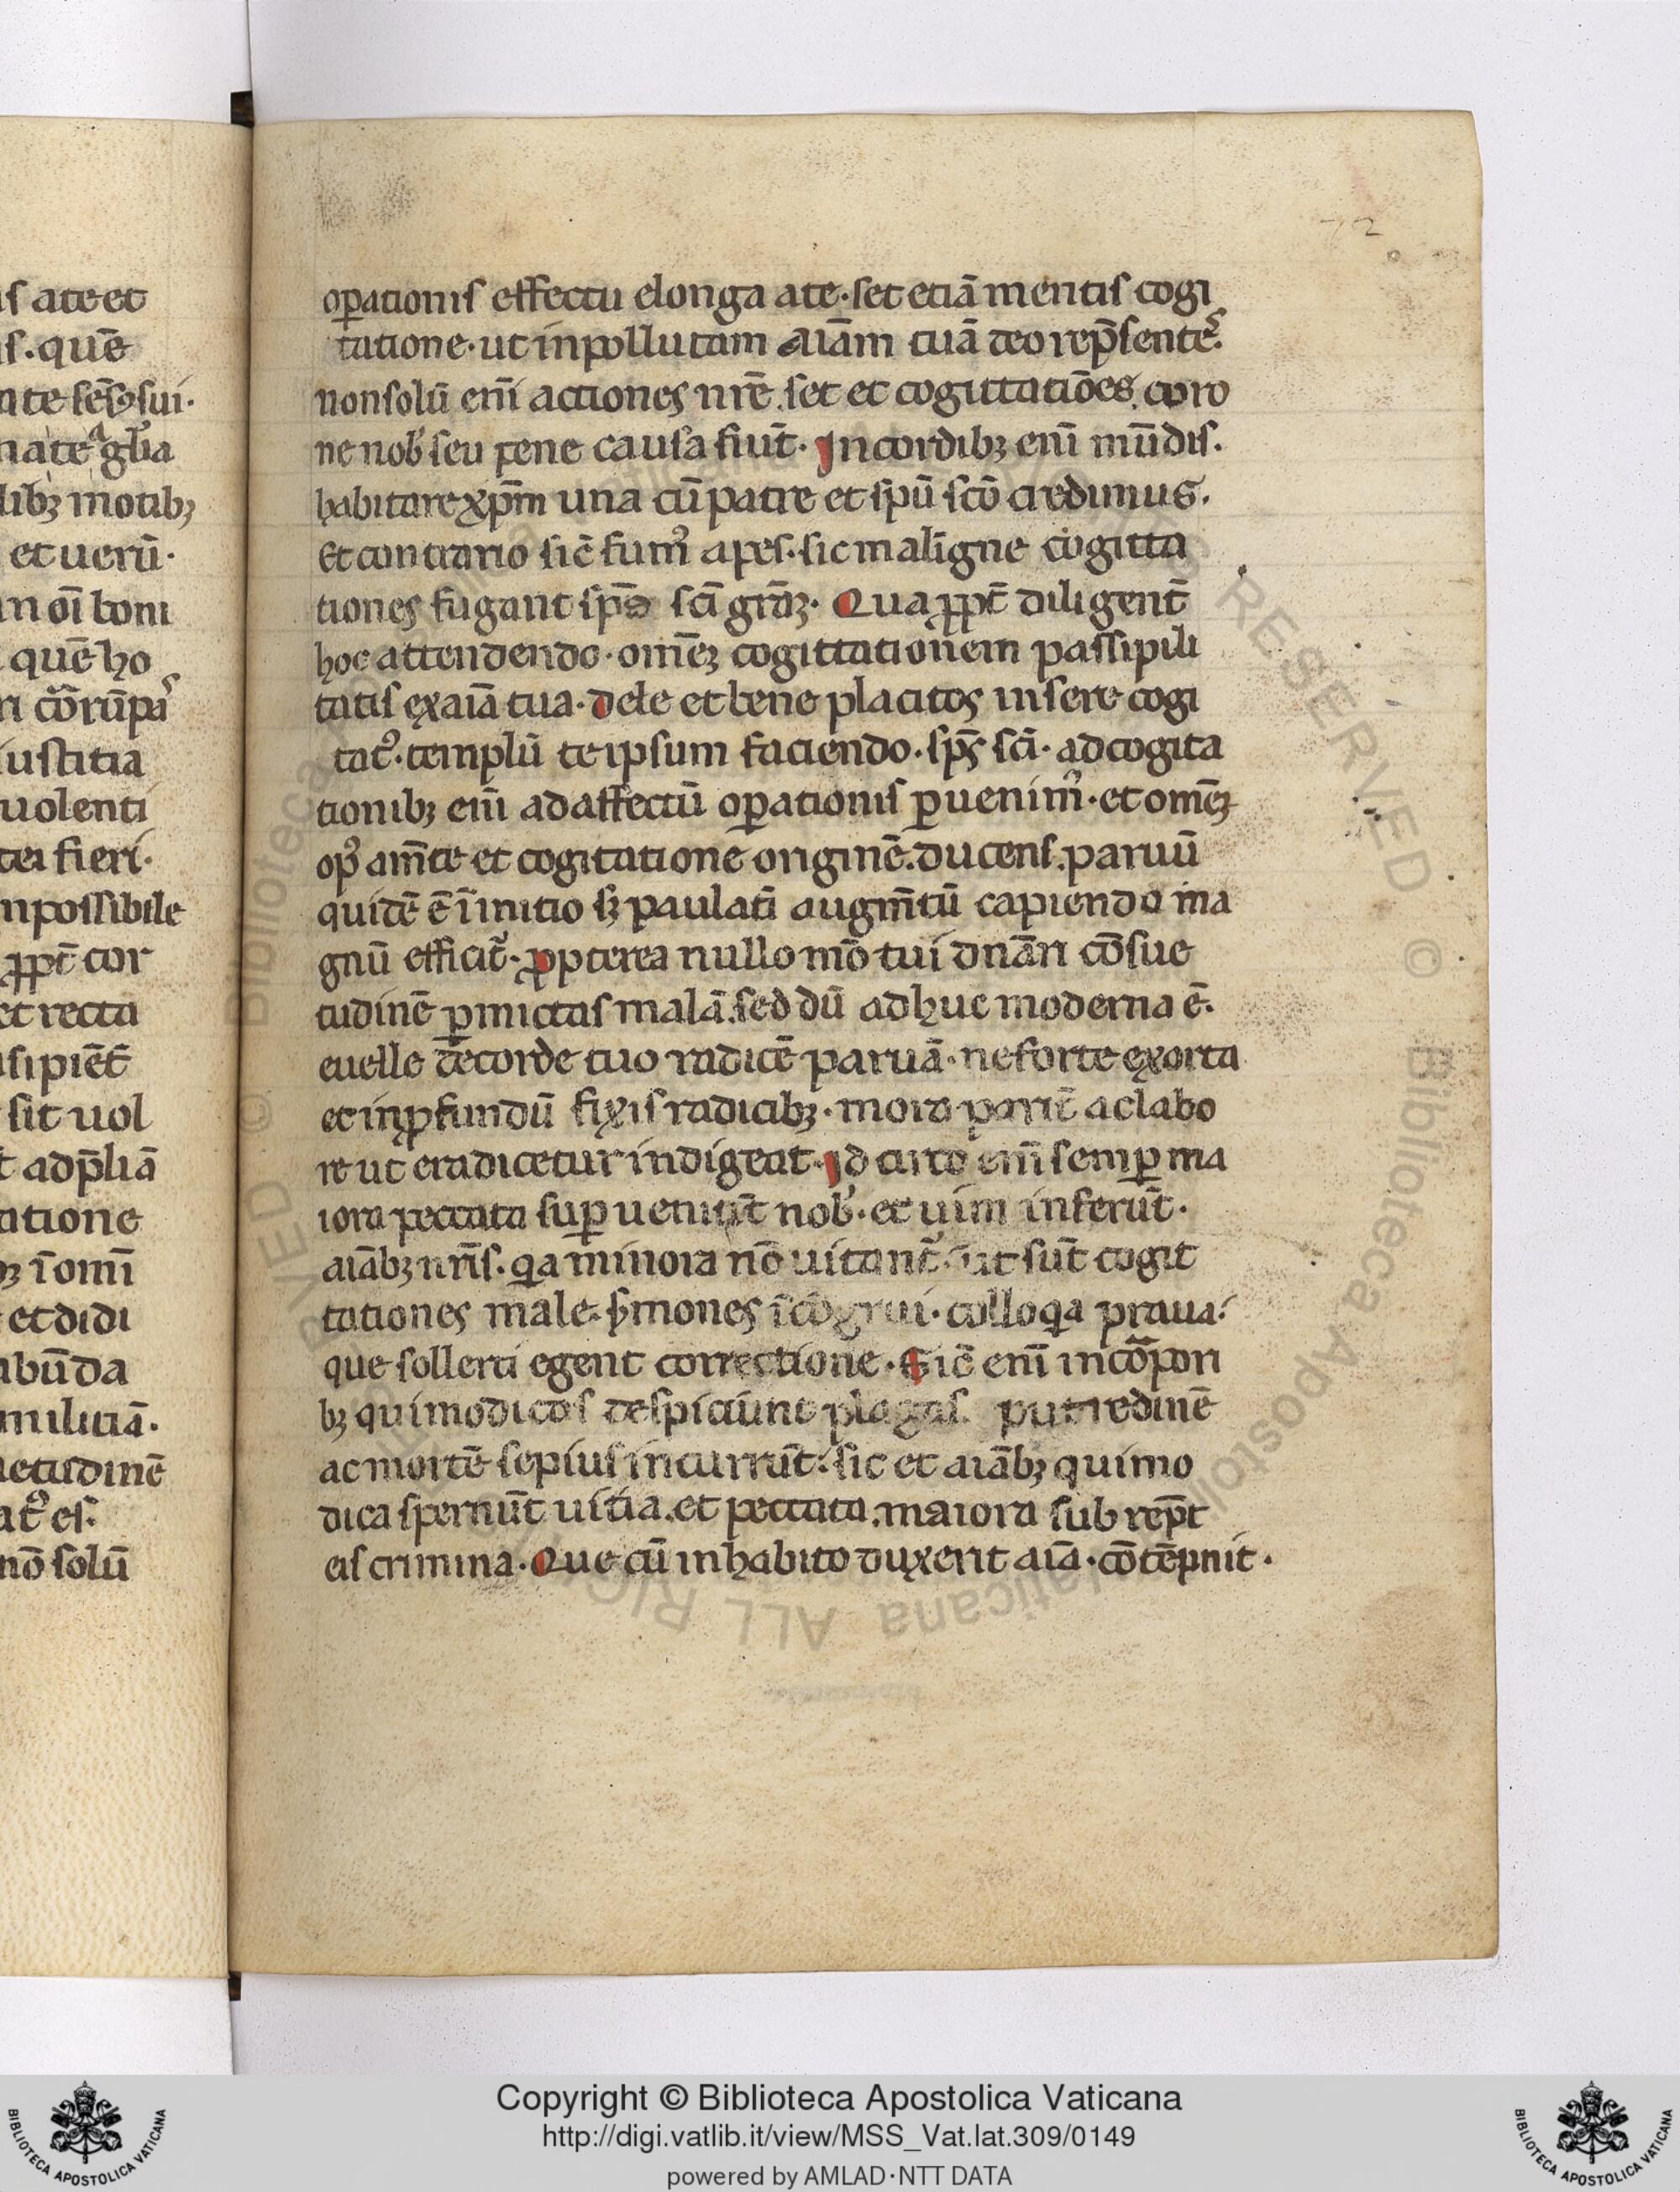 ſ ate et
ſ. quē
nte ſēſꝰ ſui.
nate gl̄ia
libꝫ motibꝫ
et uerū.
in oī boni
quē ho
ri cōrūpi
iuſtitia
uolenti
tei fieri.
npoſſibile
ꝓpt̄ cor
et recta
ſipiēt̄
ſit uol
adp̄liā
atione
ꝫ īomī
et didi
abūda
militiā.
etudinē
at᷒ eſ.
nō ſolū
72
oꝑationiſ effectu elonga ate. ſet etiā mentiſ cogi
tatione. ut inpollutam aīam tuā deo rep̄ſenteſ.
non ſolū eni᷒ actioneſ nr̄e. ſet et cogittatiōes. coro
ne nob᷒ ſeu pene cauſa fiūt. In cordibꝫ enī mūdiſ.
habitare xp̄m una cū patre et ſpū ſcō credimus.
Et contrario ſic̄ fum᷒ apeſ. ſic maligne cogitta
tioneſ fugant ſpō ſcī grāꝫ. Qua ꝓpt̄ diligent̄
hoc attendendo. omēꝫ cogittationem paſſipili
tatiſ ex aīa tua. dele et bene placitoſ inſere cogi
tat᷒. templū te ipſum faciendo. ſpſ̄ ſcī. ad cogita
tionibꝫ enī ad affectū oꝑationiſ ꝑuenim᷒. et omēꝫ
op᷒ am̄te et cogitatione originē. ducenſ. paruū
quidē ē īinitio ſꝫ paulatī augm̄tū capiendo ma
gnū efficit᷒. ꝓpterea nullo mō tui dn̄āri cōſue
tudinē ꝑmictaſ malā. ſed dū adhuc moderna ē.
euelle de corde tuo radicē paruā. ne forte exorta
et inꝓfundū fixiſ radicibꝫ. mora parit̄ ac labo
re ut eradicetur indigeat. Id circo enī ſemꝑ ma
iora peccata ſuꝑ ueniūt nob᷒. et uim inferūt.
aīabꝫ nr̄iſ. qa minora nō uitant᷒. ut ſūt cogit
tationeſ male. ẜmoneſ īcōgrui. colloqa praua.
que ſollerti egent correctione. Sic̄ enī in corꝑori
bꝫ qui modicoſ deſpiciunt plagaſ. putredinē
ac mortē ſepiuſ incurrūt. ſic et aīabꝫ qui mo
dica ſpernūt uitia. et peccata. maiora ſub rep̄t
eiſ crimina. Que cū in habito duxerit aīa. cōtēpnit.
Copyright © Biblioteca Apostolica Vaticana
http://digi.vatlib.it/view/MSS_Vat.lat.309/0149
powered by AMLAD·NTT DATA
BIBLIOTECA APOSTOLICA VATICANA
BIBLIOTECA APOSTOLICA VATICANA